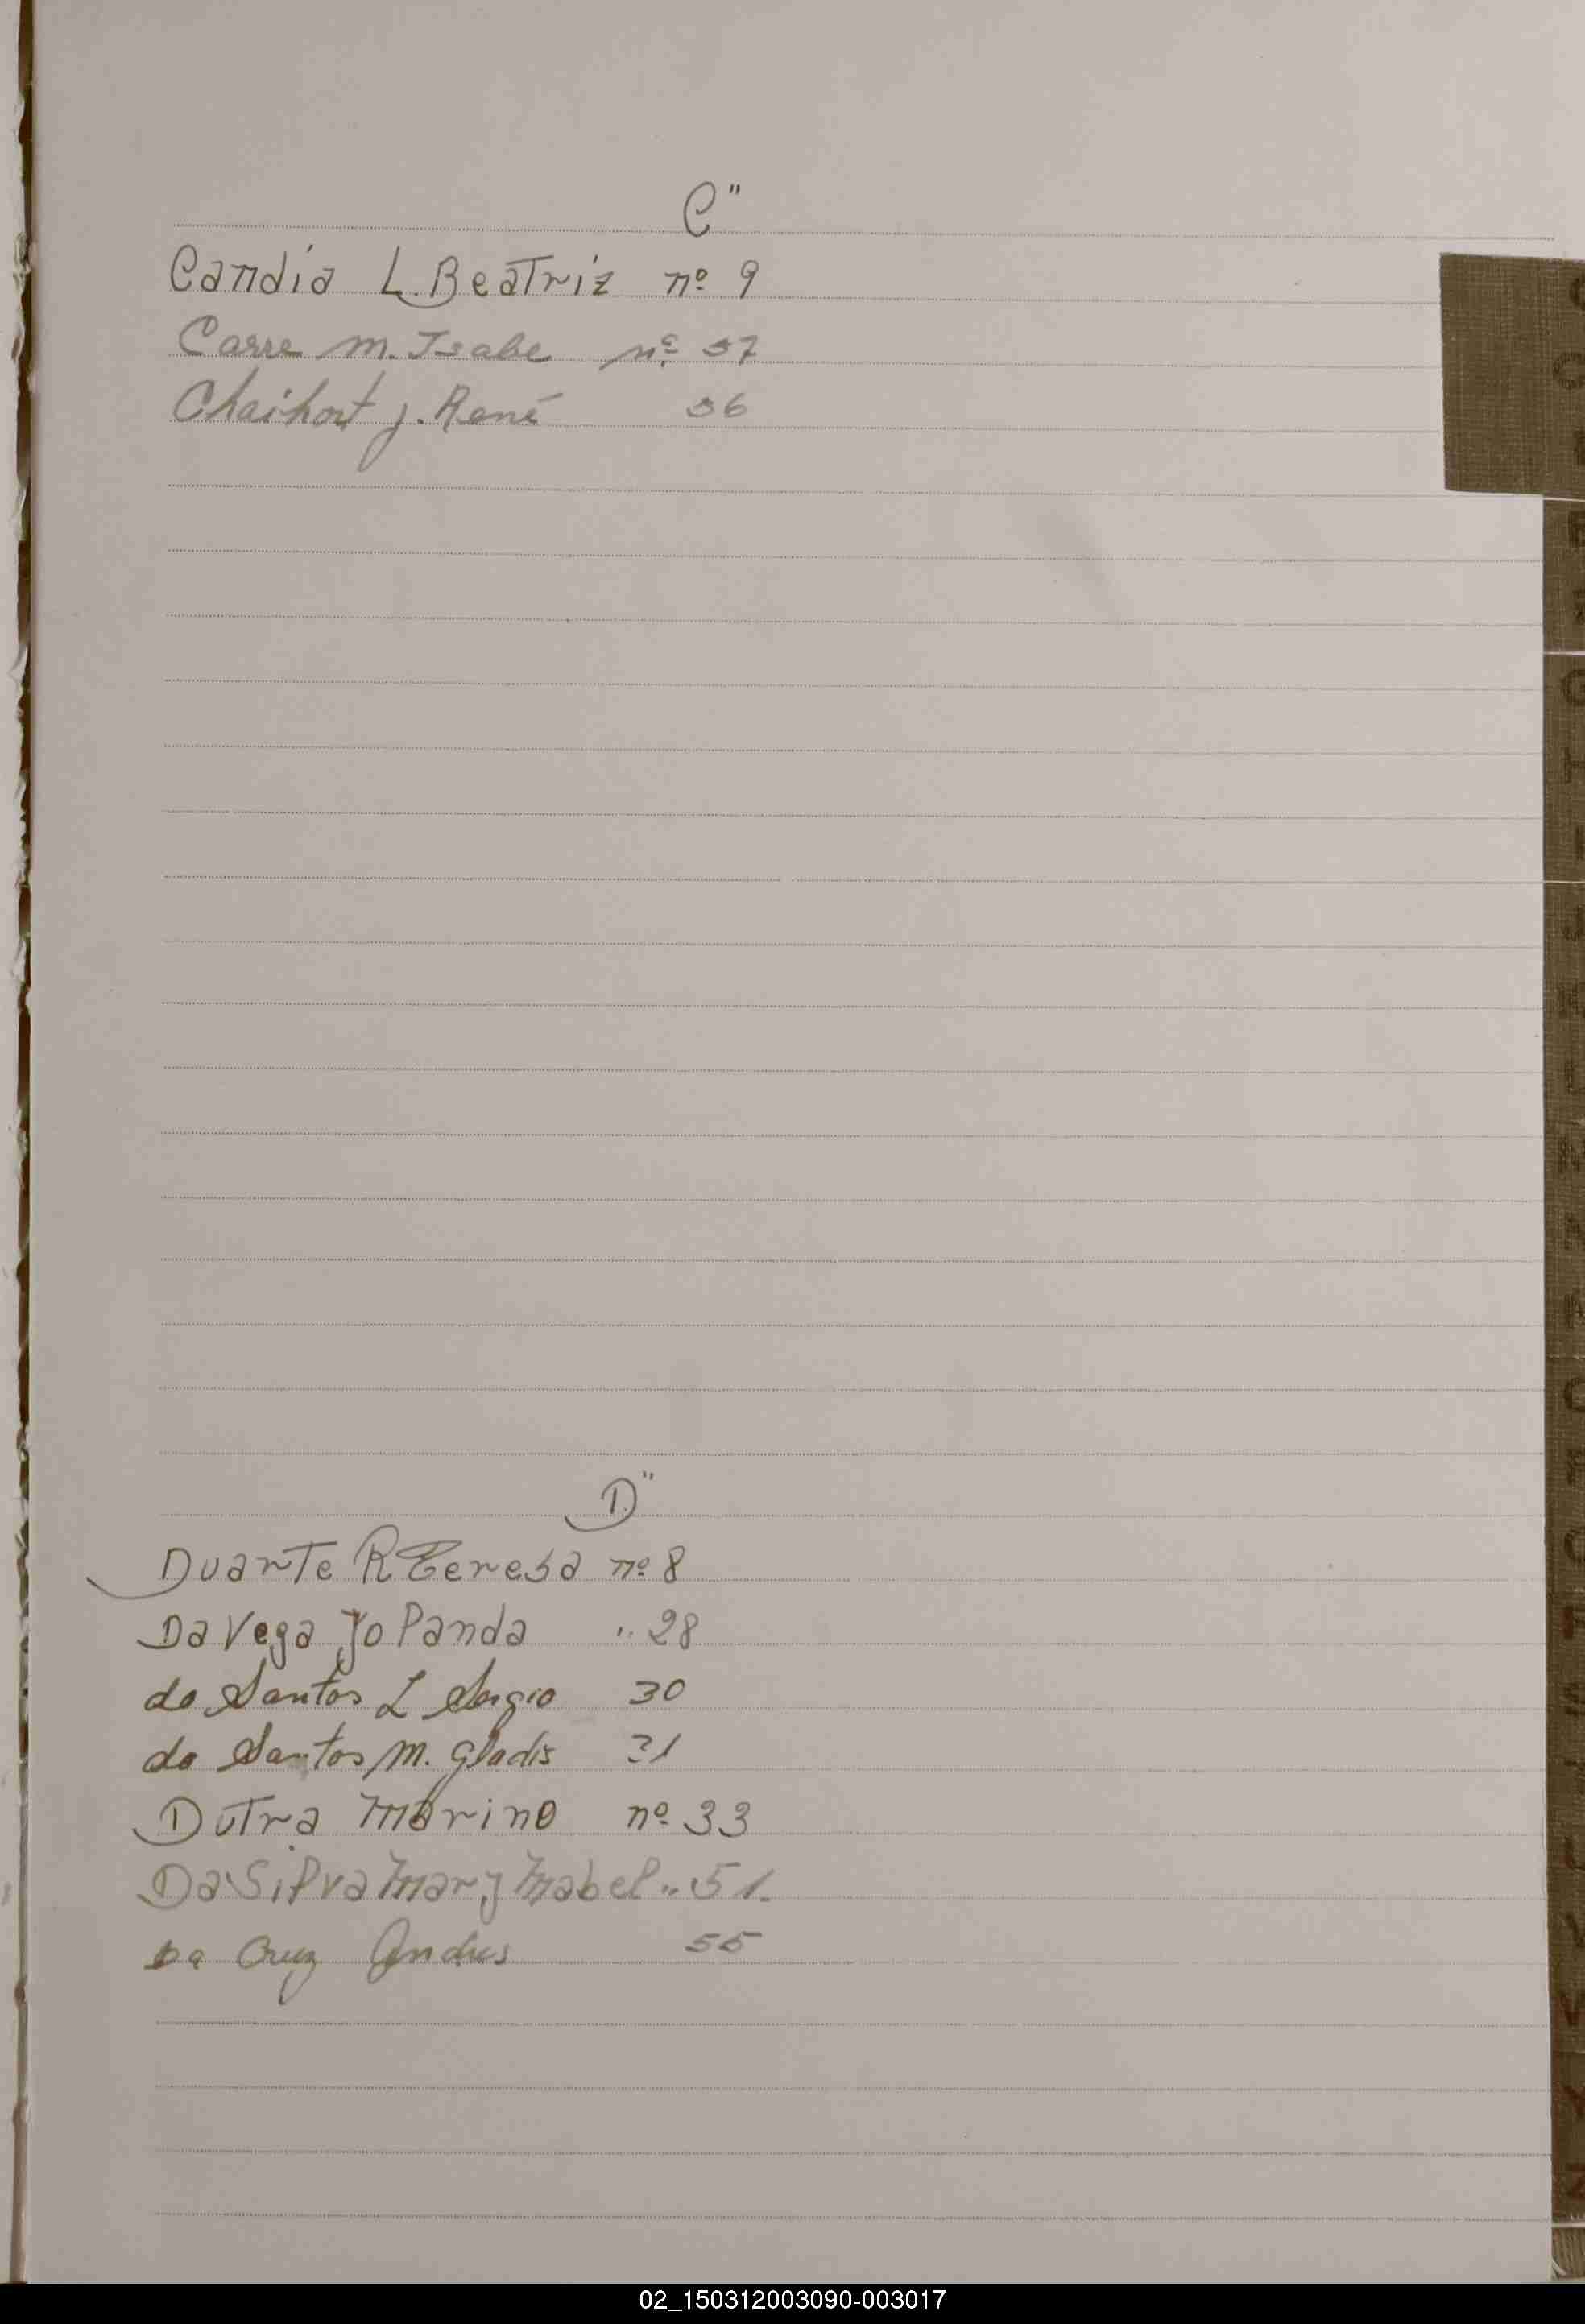 C"
Candia L. Beatriz nº 9
Carre M. Isabe nº 37
J. René 36
D"
Duarte R Teresa nº 8
Da Vega Yolanda " 28
do Santos L Sergio 30
do Santos M. Gladis 31
Dutra Marino nº 33
Da Silva Mary Mabel " 51.
Da Cruz Andres 55
02_150312003090-003017